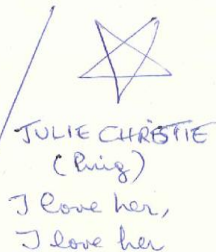 JULIE CHRISTIE
(Puig)
I love her,
I love her